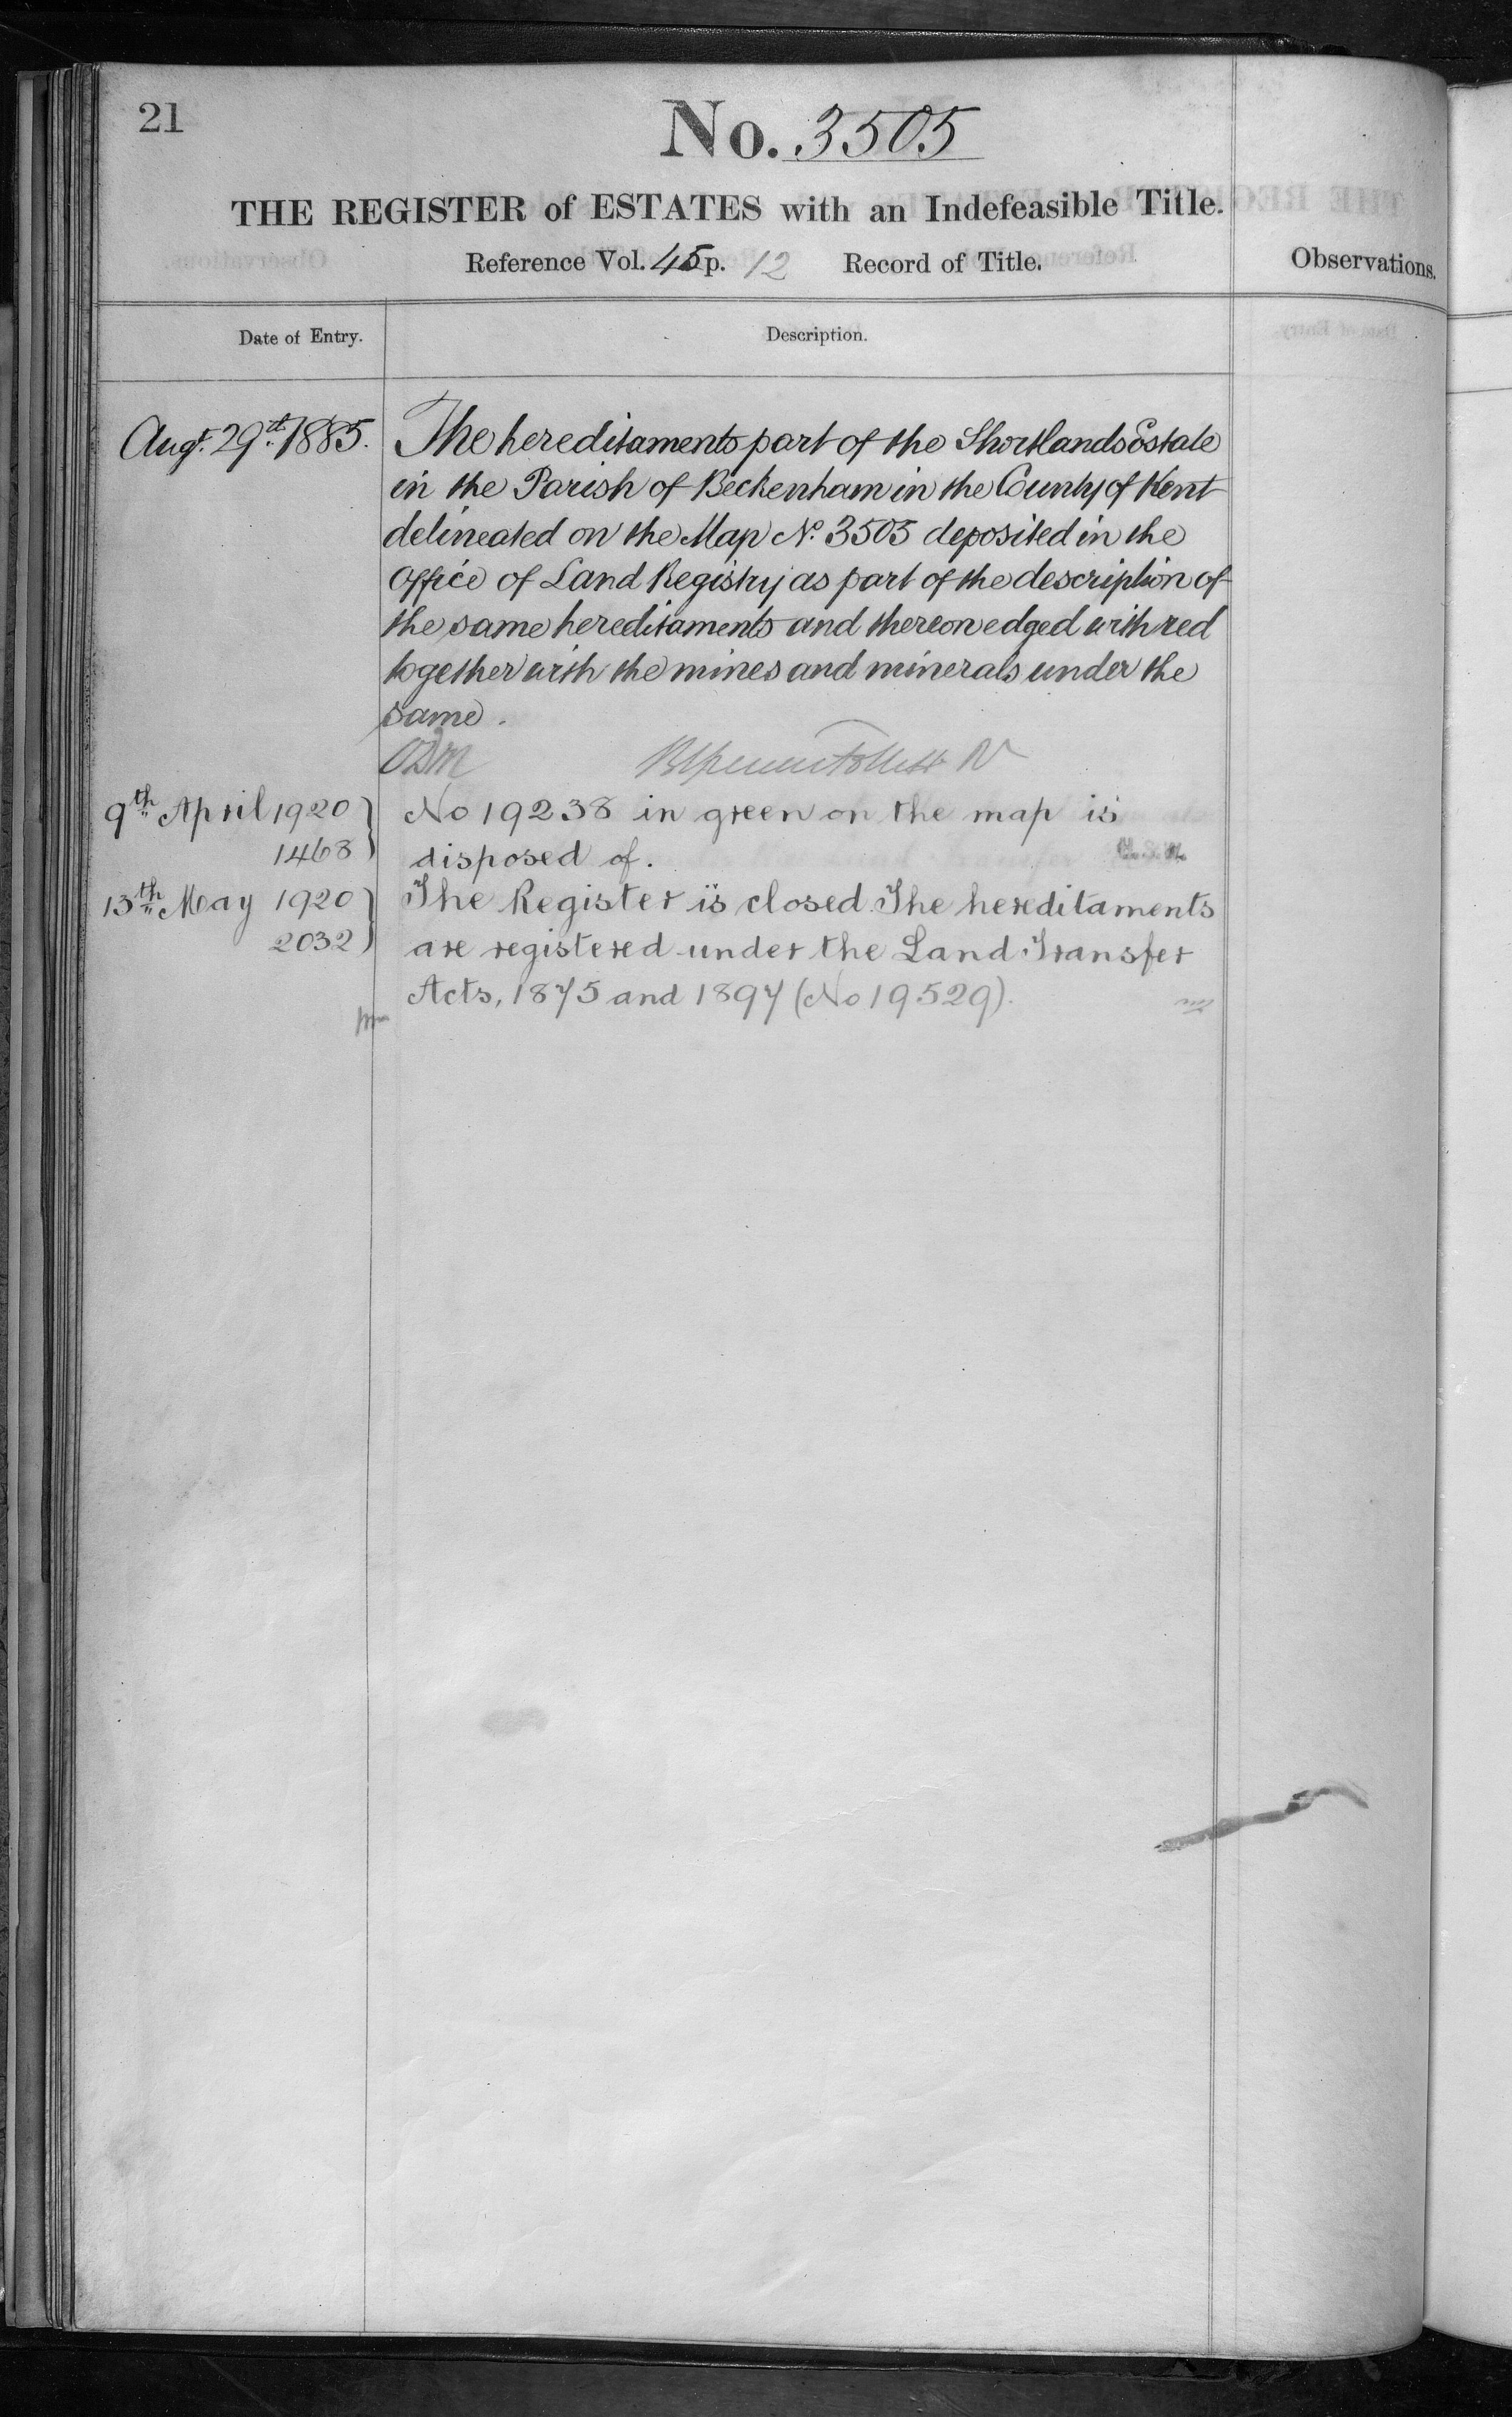 21
No. 3505
THE REGISTER of ESTATES with an Indefeasible Title.
Reference Vol. 45 p. 12 Record of Title.
Observations.
Date of Entry.
Description.
Augt. 29th. 1885.
The hereditaments part of the Shortlands Estate
in the Parish of Beckenham in the County of Kent
delineated on the Map No. 3505 deposited in the
Office of Land Registry as part of the description of
the same hereditaments and thereon edged with red
together with the mines and minerals under the
same.
9th April 1920
1468
No 19238 in green on the map is
disposed of.
13th May 1920
2032
The Register is closed. The hereditaments
are registered under the Land Transfer
Acts, 1875 and 1897 (No 19529).